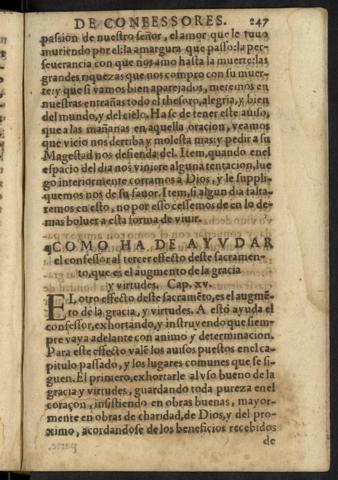 DE CONFESSORES. 247
passion de nuestro señor, el amor que le tuuo
muriendo por el: la amargura que passo: la per-
seuerancia con que nos amo hasta la muerte: las
grandes riquezas que nos compro con su muer-
te: y que si vamos bien aparejados, meremos en
nuestras entrañas todo el thesoro, alegria, y bien
del mundo, y del cielo. Ha se de tener este auiso,
que a las mañanas en aquella oracion, veamos
que vicio nos derriba y molesta mas: y pedir a su
Magestad nos defienda del. Item, quando en el
espacio del dia nos viniere alguna tentacion, lue
go interiormente corramos a Dios, y le suppli-
quemos nos de su fauor. Item, si algun dia falta-
remos en esto, no por esso cessemos de en lo de-
mas boluer a esta forma de viuir.
¶COMO HA DE AYVDAR
el confessor al tercer effecto deste sacramen-
to, que es el augmento de la gracia
y virtudes. Cap. xv.
EL otro effecto deste sacramẽto, es el augmẽ-
to de la gracia, y virtudes. A esto ayuda el
confessor, exhortando, y instruyendo que siem-
pre vaya adelante con animo y determinacion.
Para este effecto valẽ los auisos puestos en el ca-
pitulo passado, y los lugares comunes que se si-
guen. El primero, exhortarle al vso bueno de la
gracia y virtudes, guardando toda pureza en el
coraçon, insistiendo en obras buenas, mayor-
mente en obras de charidad, de Dios, y del pro-
ximo, acordandose de los beneficios recebidos
de